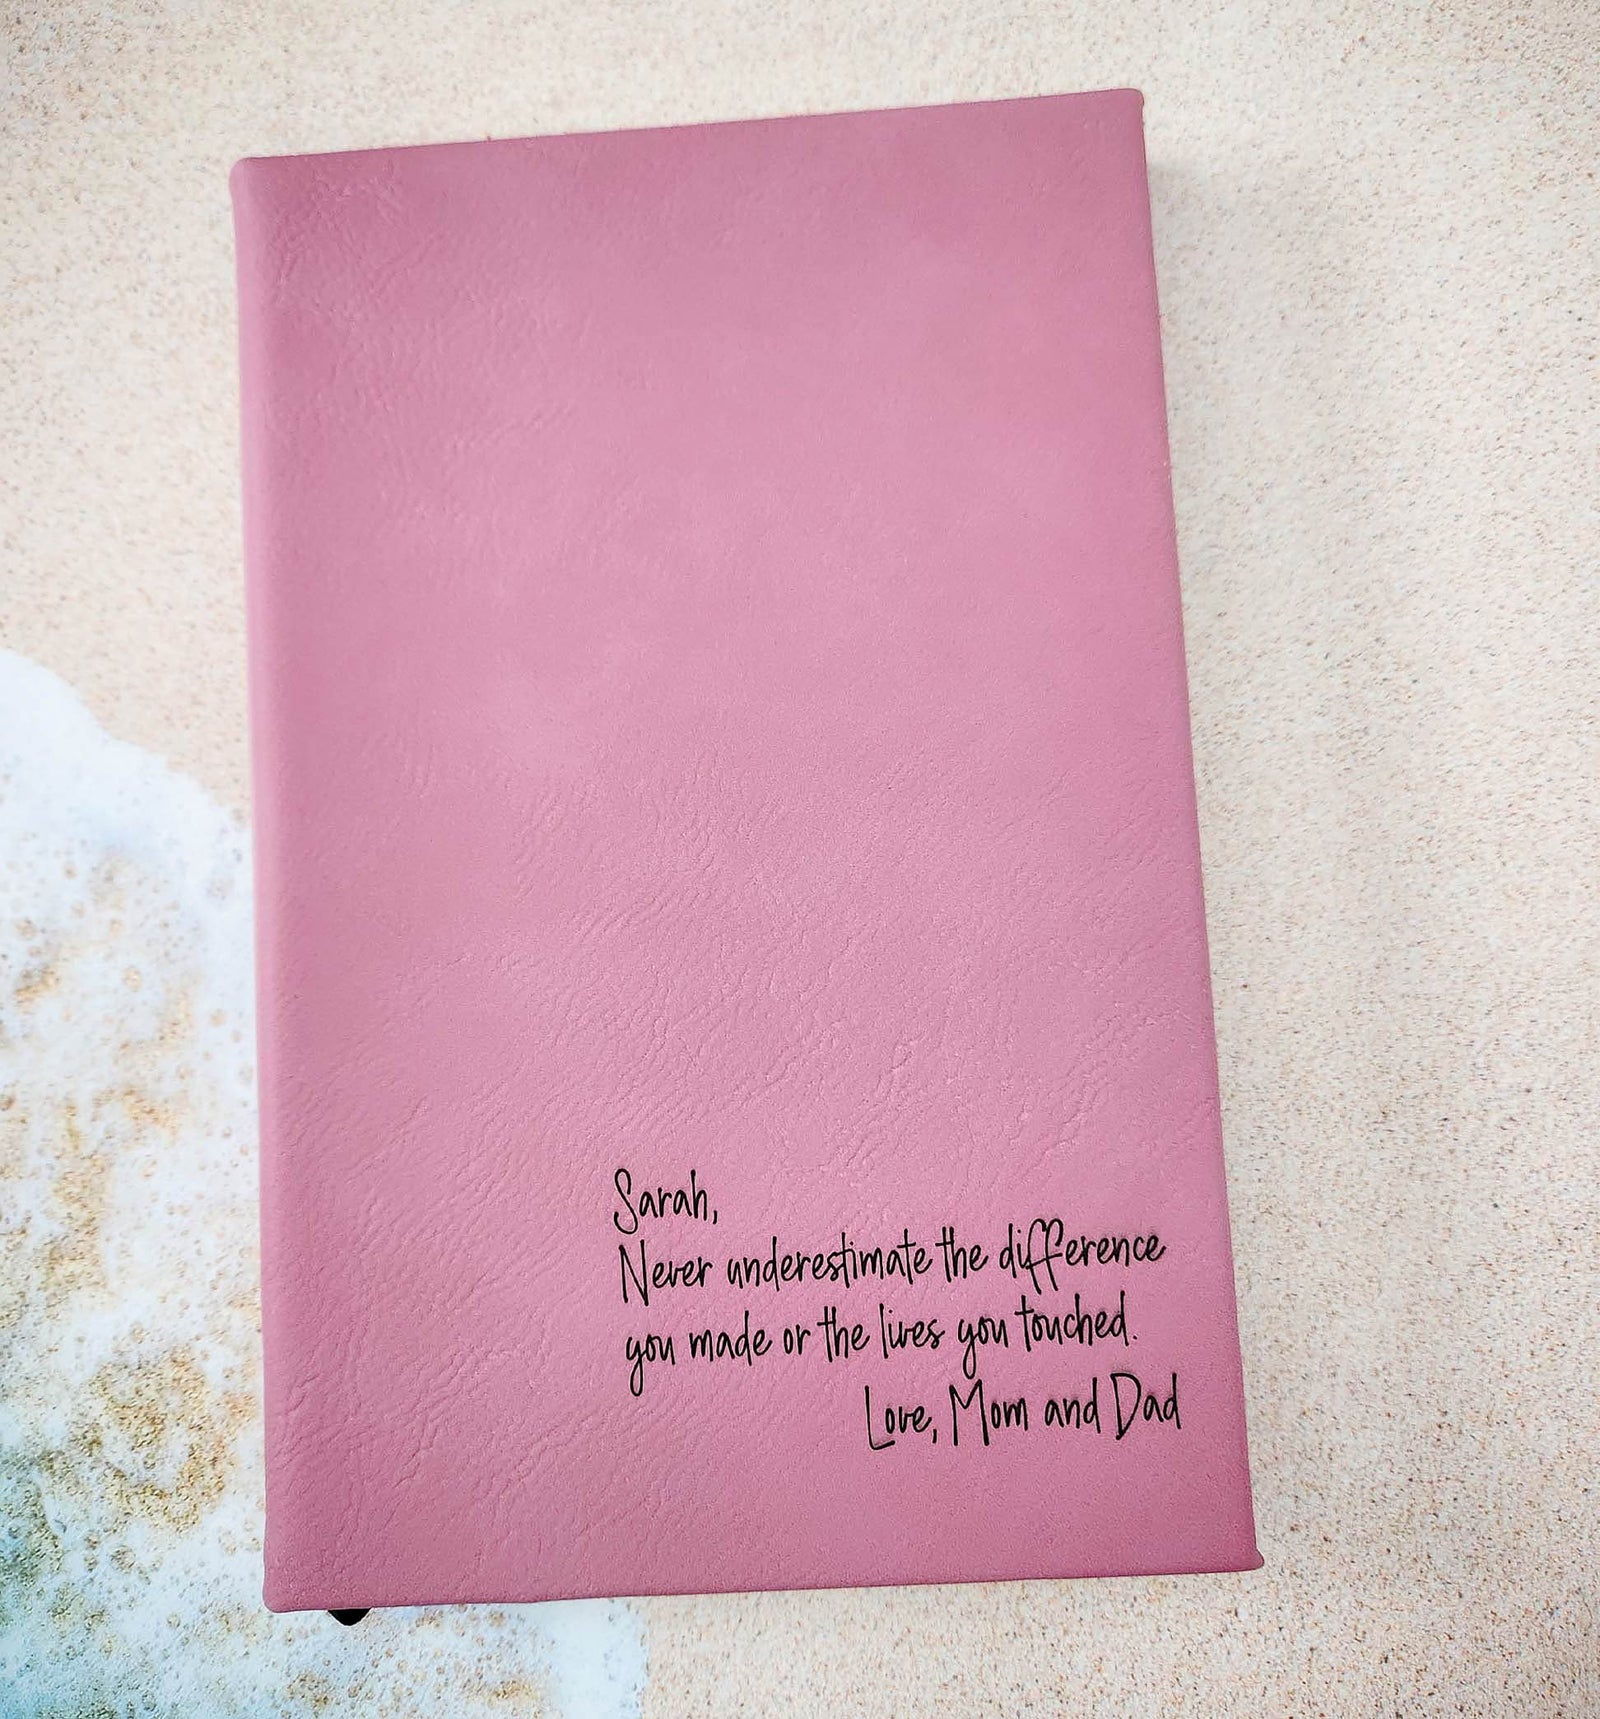 Sarah,
Never underestimate the difference
you made or the lives you touched.
Love, Mom and Dad